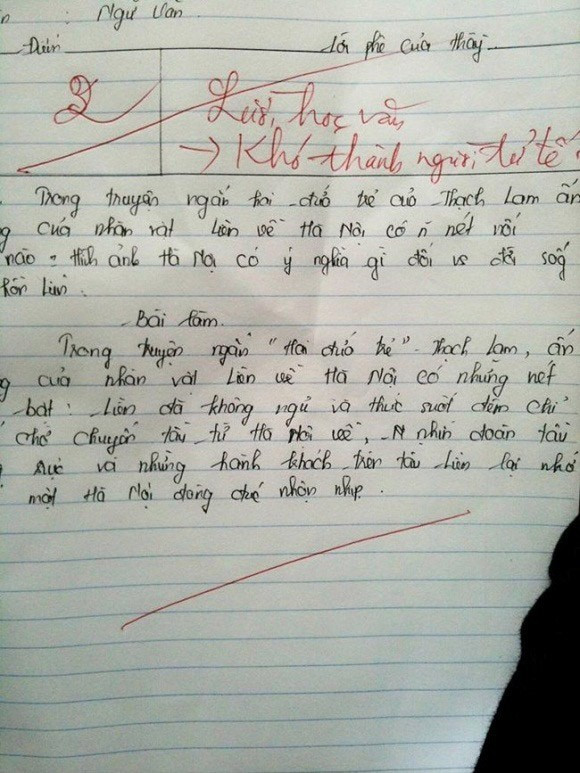 : Ngữ Văn
Điểm Lời phê của thầy
2 Lười học văn
→ Khó thành người tử tế
Trong truyện ngắn hai đứa trẻ của Thạch Lam ấn
g của nhân vật Liên về Hà Nội có n nét nổi
nào = hình ảnh Hà Nội có ý nghĩa gì đối vs đời sốg
hồn Liên.
Bài làm.
Trong truyện ngắn "Hai đứa trẻ" Thạch Lam, ấn
g của nhân vật Liên về Hà Nội có những nét
bật: Liên đã không ngủ và thức suốt đêm chỉ
chờ chuyến tàu từ Hà Nội về, nhìn đoàn tàu
rực và những hành khách trên tàu Liên lại nhớ
một Hà Nội đông đúc nhộn nhịp.